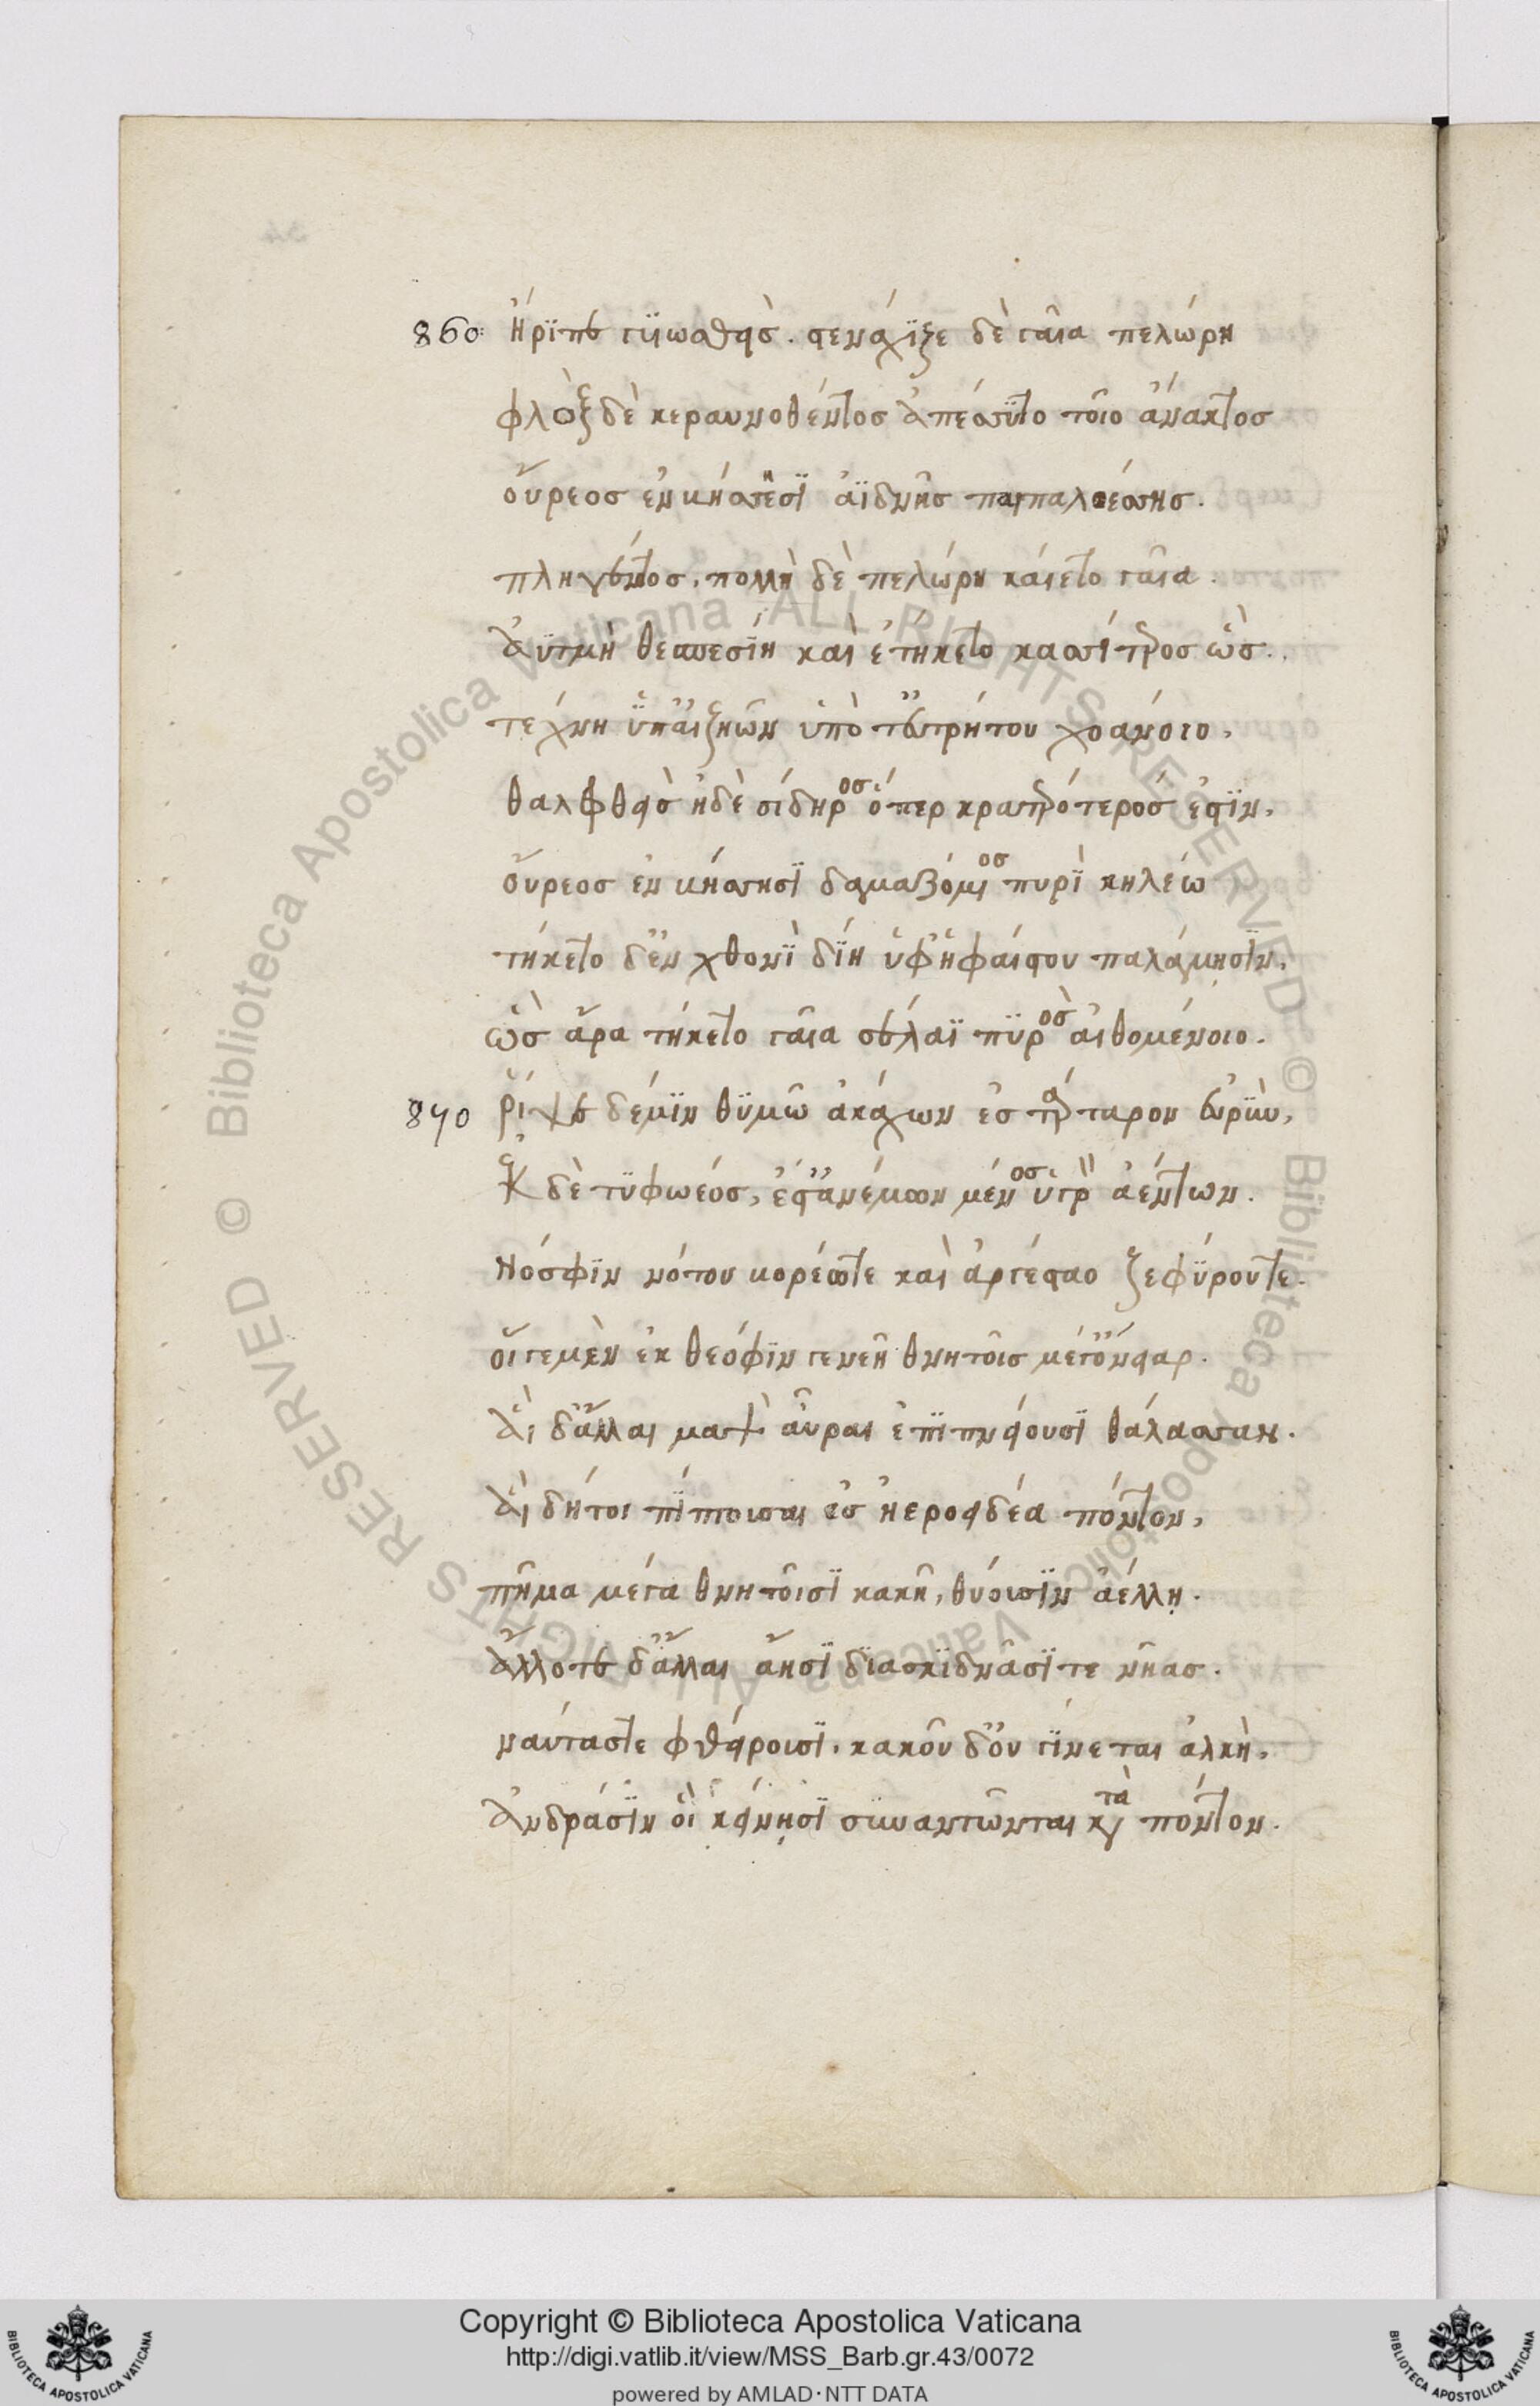 860: ἤρϊπε γϋιωθεὶσ. στενάχϊζε δὲ γαῖα πελώρη
φλὸξ δὲ κεραυνοθέντοσ ἀπέσσϋτο τοῖο ἄνακτοσ
οὔρεοσ ἐν βήσσησϊ ἀϊδνῆσ παιπαλοέσσησ.
πληγέντοσ. πολλὴ δὲ πελώρη καίετο γαῖα.
ἀϋτμὴ θεσπεσίη καὶ ἐτήκετο κασσίτεροσ ὣσ.
τέχνη ὕπ' αἰζηῶν ὑπὸ τ' εὐτρήτου χοάνοιο,
θαλφθεὶσ ἠδὲ σίδηροσ ὅπερ κρατερότεροσ ἐστϊν,
οὔρεοσ ἐν βήσσησϊ δαμαζόμενοσ πυρϊ κηλέω
τήκετο δ' ἐν χθονϊ δίη ὑφ' ἡφαίστου παλάμησϊν.
ὣσ ἄρα τήκετο γαῖα σέλαϊ πϋρὸσ αἰθομένοιο.
870 ῥίψε δέ μϊν θϋμῶ ἀκάχων ἐσ τάρταρον εὐρϋν,
ἐκ δὲ τϋφωέοσ, ἔστ' ἀνέμων μένοσ ὑγρὸν ἀέντων.
Νόσφϊν νότου βορέωτε καὶ ἀργέσταο ζεφϋρουτε.
οἵγεμὲν ἐκ θεόφϊν γενεὴ θνητοῖσ μέγ' ὄνειαρ.
ἁι δ' ἄλλαι μαψ αὖραι ἐπϊπνείουσϊ θάλασσαν.
ἁὶ δήτοι πίπτουσαι ἐσ ἠεροειδέα πόντον,
πῆμα μέγα θνητοῖσϊ κακῆ, θύουσϊν ἀέλλη.
ἄλλοτε δ' ἄλλαι ἄησϊ δϊασκϊδνᾶσϊ τε νῆασ.
ναύταστε φθείρουσϊ. κακοῦ δ' οὐ γίνεται ἀλκὴ.
ἀνδράσϊν ὃι κείνησϊ σϋναντῶνται κατὰ πόντον.
Copyright © Biblioteca Apostolica Vaticana
http://digi.vatlib.it/view/MSS_Barb.gr.43/0072
powered by AMLAD·NTT DATA